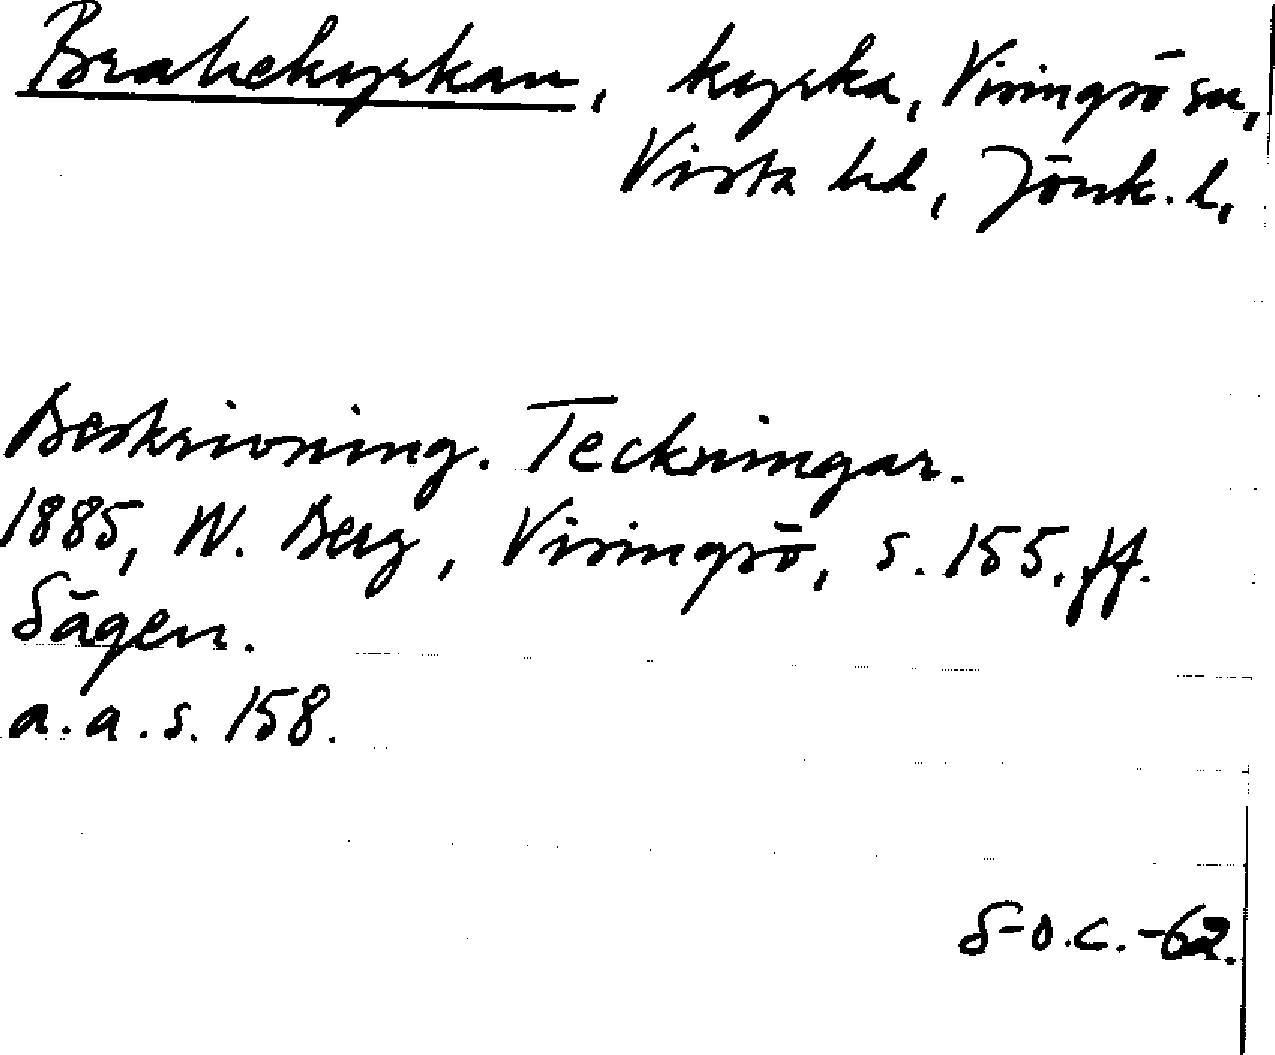 Brahekyrkan, kyrka, Visingsö sn,
Vista hd, Jönk. l,
Beskrivning. Teckningar.
1885, W. Berg, Visingsö, s. 155. ff.
Sägen.
a. a. s. 158.
S-O.C.-62.